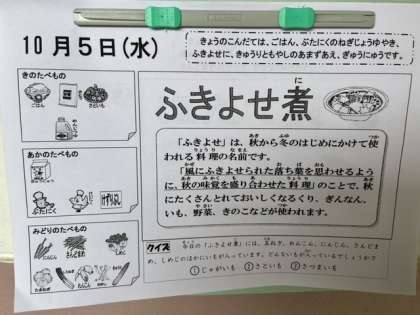 10月5日(水)
きょうのこんだては、ごはん、ぶたにくのねぎじょうゆやき、
ふきよせに、きゅうりともやしのあまずあえ、ぎゅうにゅうです。
きのたべもの
ごはん
さといも
あかのたべもの
ぶたにく
けずりぶし
みどりのたべもの
にんじん
さんどまめ
しめじ
たまねぎ
もやし
ふきよせ煮
に
「ふきよせ」は、秋から冬のはじめにかけて使
われる料理の名前です。
「風にふきよせられた落ち葉を思わせるよう
に、秋の味覚を盛り合わせた料理」のことで、秋
にたくさんとれておいしくなるくり、ぎんなん、
いも、野菜、きのこなどが使われます。
クイズ
今日の「ふきよせ煮」には、玉ねぎ、めんこん、にんじん、さんどま
め、しめじのほかにいもが入っています。どんないもが入っているでしょうか?
①じゃがいも ②さといも ③さつまいも